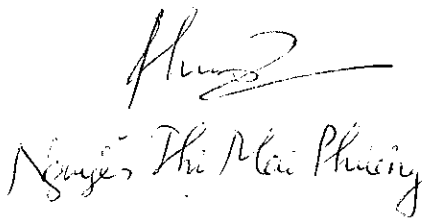 Nguyễn Thị Mai Phương